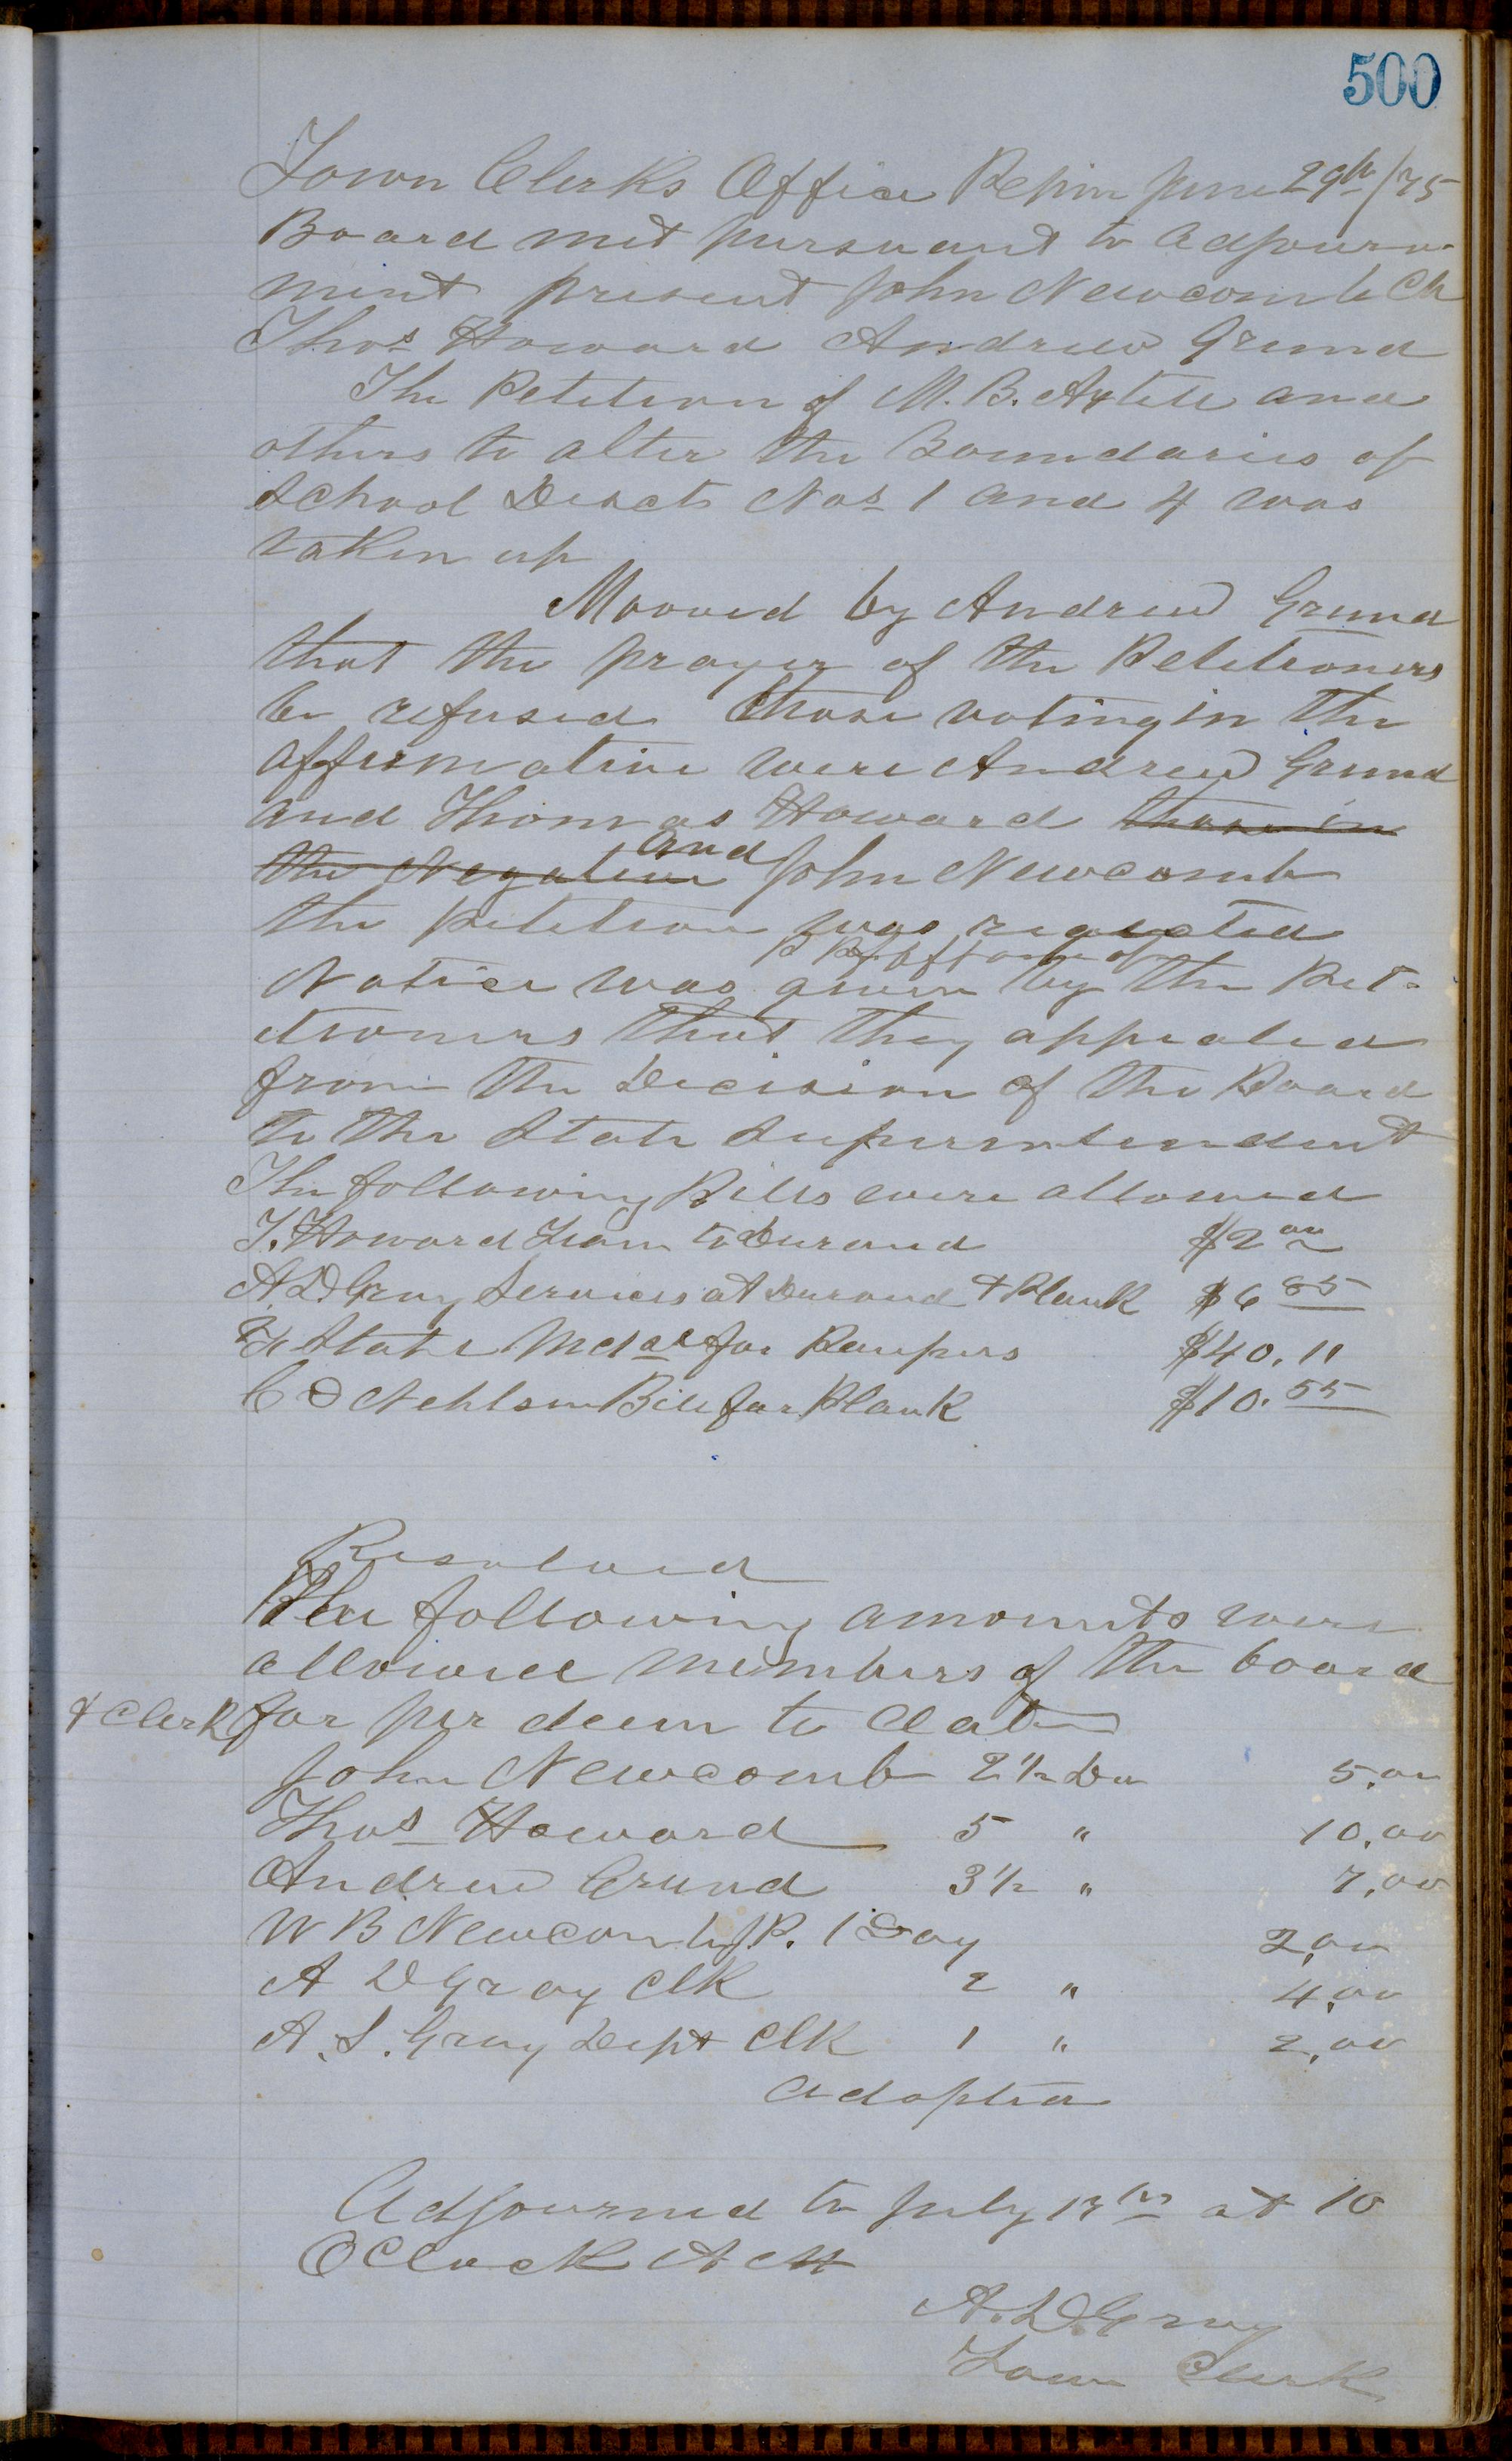 500
Town Clerks Office Pepin June 29th/75
Board met pursuant to adjourn-
ment present John Newcomb Ch
Thos Howard Andrew Grund
The Petition of M. B. Axtell and
others to alter the Boundaries of
School Nos 1 and 4 was
taken up
Mooved by Andrew Grund
that the prayer of the Petitioners
be refused those voting in the
affirmative were Andrew Grund
and Thomas Howard those in
the Negative and John Newcomb
the petition was rejected
Notice was given by the Peti-
tioners that they appealed
from the Decision of the Board
to the State Superintendent
The following Bills were allowed
T. Howard Team to Durand $2 00
A. D. Gray Services at Durand & Plank $6 85
State for Paupers $40.11
Bill for Plank $10.55
Resolved
The following amounts were
allowed members of the board
& Clerk for per deem to date
John Newcomb 2 1/2 Da 5.00
Thos Howard 5 " 10.00
Andrew Grund 3 1/2 " 7.00
W B Newcomb J.P. 1 Day 2.00
A D Gray Clk 2 " 4.00
A. S. Gray Dept Clk 1 " 2.00
adopted
Adjourned to July at 10
OClock A M
A. D. Gray
Town Clerk